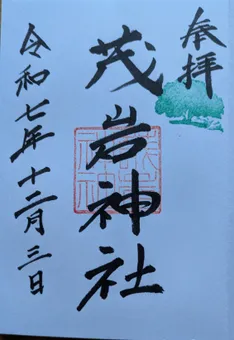 奉拝
茂岩神社
令和七年十二月三日